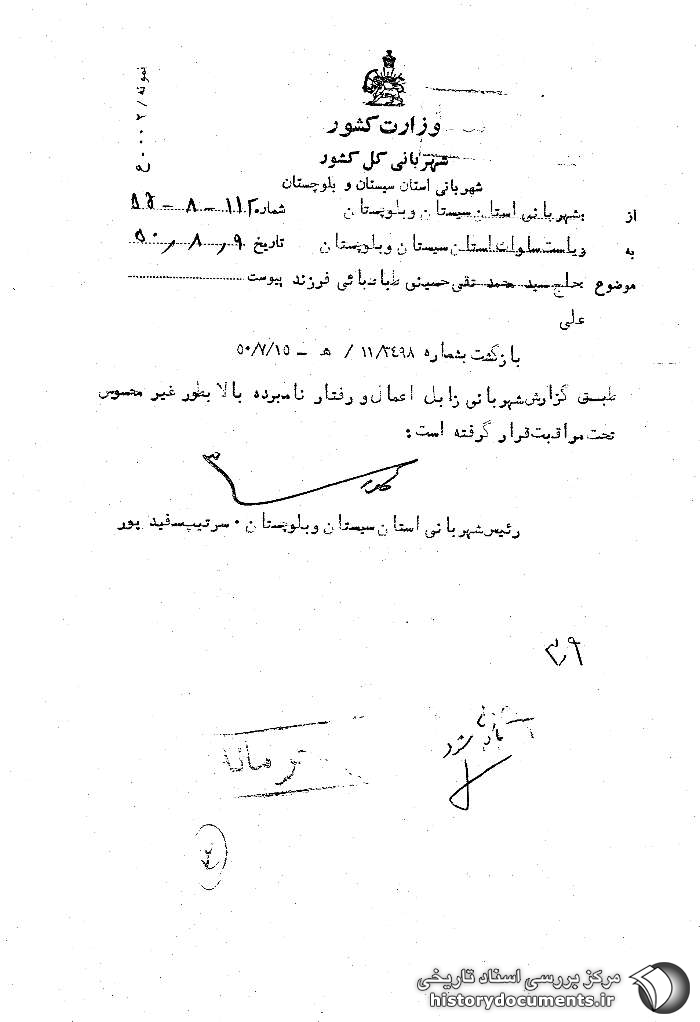 نمونه / ۲۰۰۰ع
وزارت کشور
شهربانی کل کشور
شهربانی استان سیستان و بلوچستان
از شهربانی استان سیستان و بلوچستان شماره ۱۱۲-۸-
به ریاست ساواک استان سیستان و بلوچستان تاریخ ۵۰٫۸٫۹
موضوع حاج سید محمد تقی حسینی طباطبائی فرزند پیوست
علی
بازگشت بشماره ۱۱/۳۴۹۸ / هـ - ۵۰/۷/۱۵
طبق گزارش شهربانی زابل اعمال و رفتار نامبرده بالا بطور غیر محسوس
تحت مراقبت قرار گرفته است :
رئیس شهربانی استان سیستان و بلوچستان ۰ سرتیپ سفید پور
شود
مرکز بررسی اسناد تاریخی
historydocuments.ir